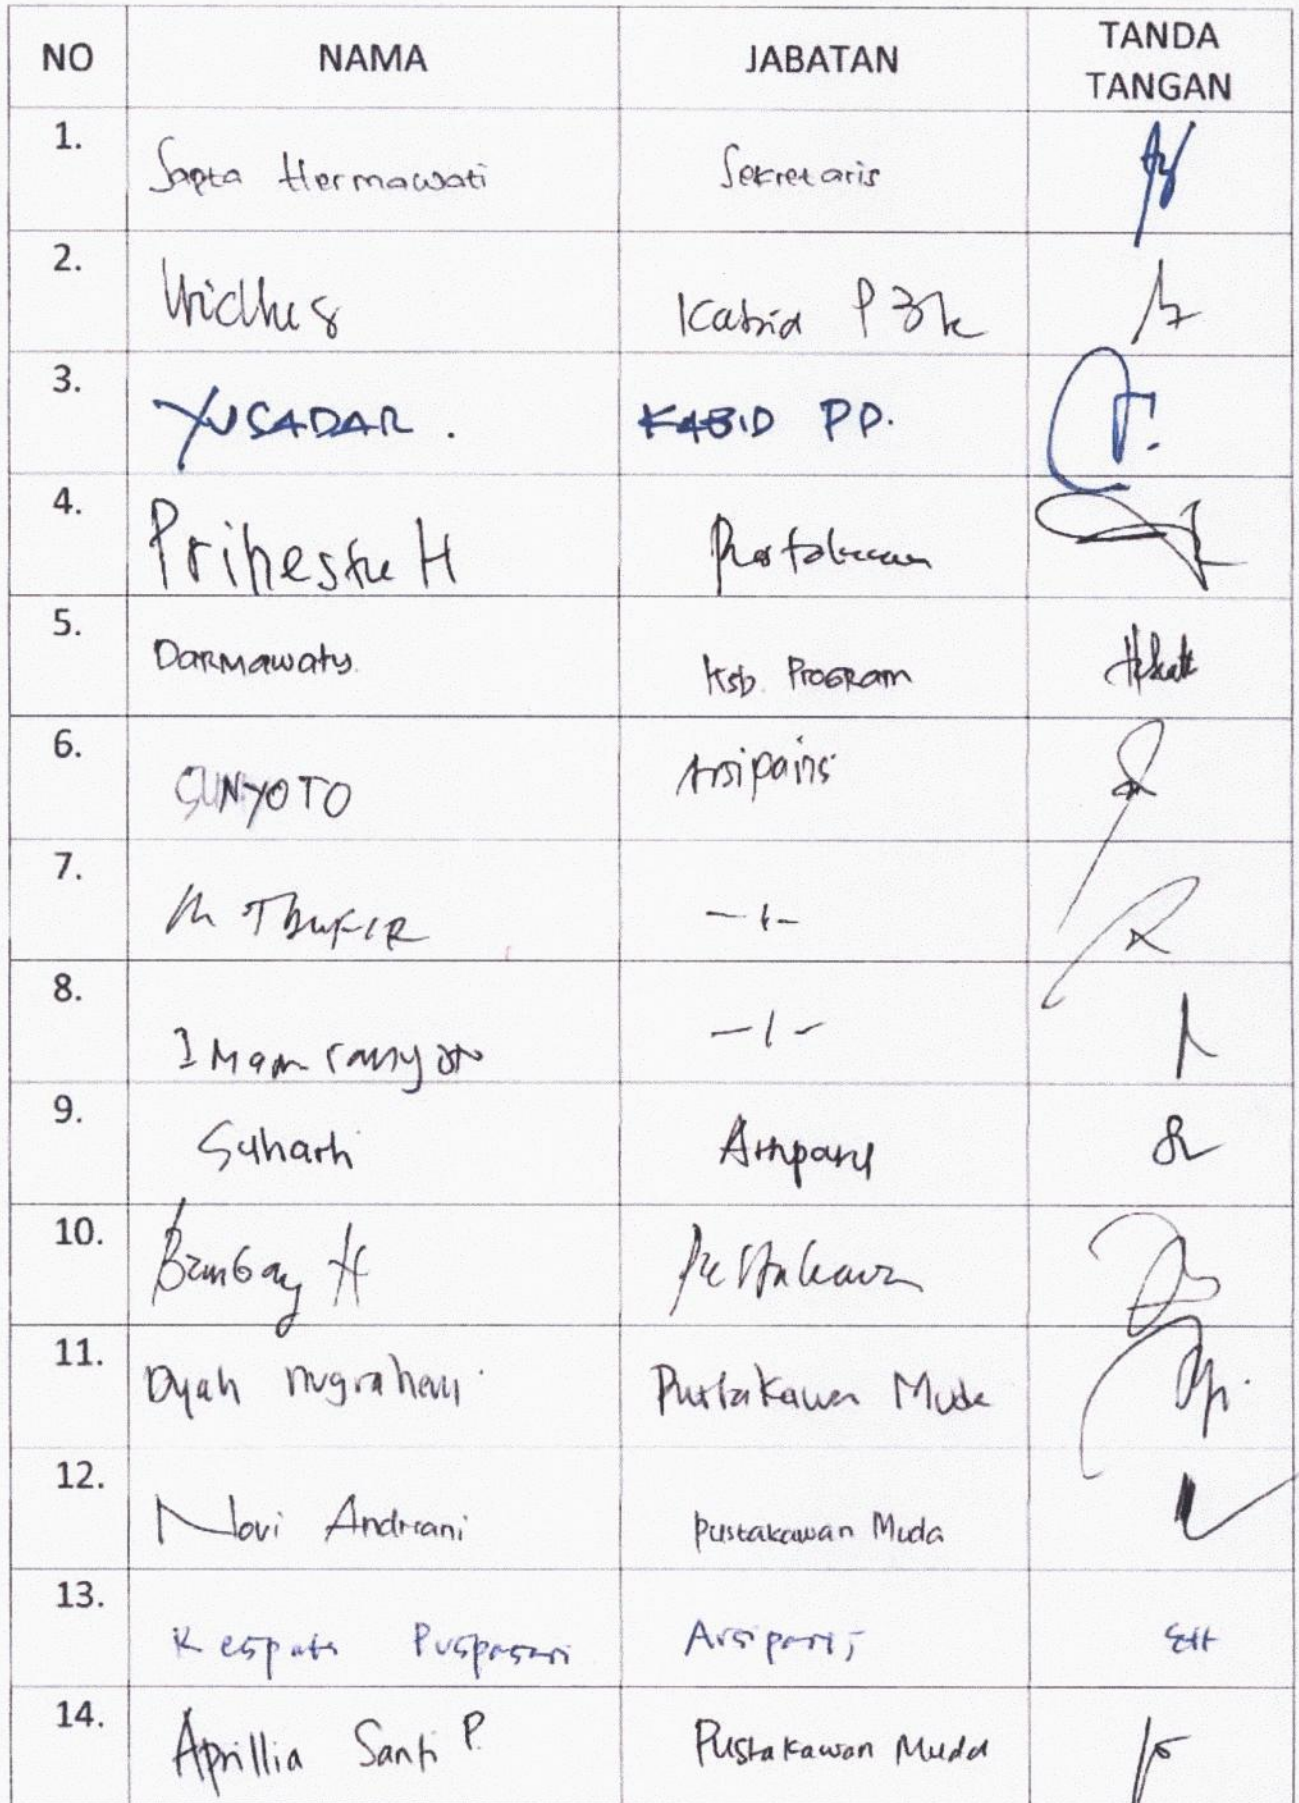 NO NAMA JABATAN TANDA TANGAN
1. Sapta Hermawati Sekretaris
2. Kabid P3K
3. YUSADAR. KABID PP.
4. H Pustakawan
5. Darmawaty Ksb. Program
6. SUNYOTO Arsiparis
7. M
8. Imam
9. Suharti Arsiparis
10. Bambang H Pustakawan
11. Dyah Nugraheni Pustakawan Muda
12. Novi Andriani Pustakawan Muda
13. Puspasari Arsiparis
14. Aprillia Santi P. Pustakawan Muda